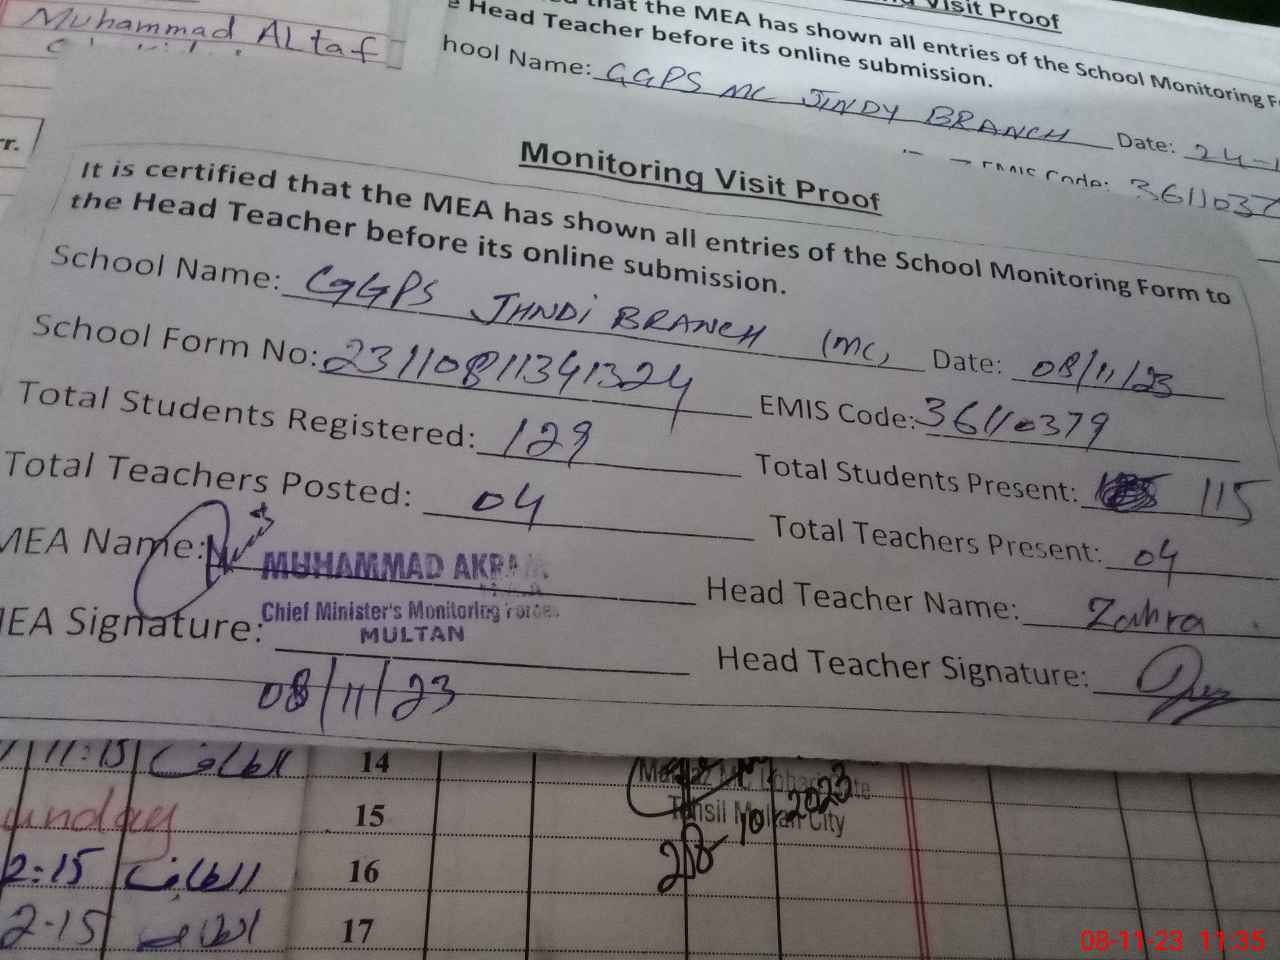 Muhammad ALtaf
Visit Proof
that the MEA has shown all entries of the School Monitoring F
e Head Teacher before its online submission.
hool Name: GGPS MC JINDY BRANCH Date: 24-1
EMIS Code: 3611037
r.
Monitoring Visit Proof
It is certified that the MEA has shown all entries of the School Monitoring Form to
the Head Teacher before its online submission.
School Name: GGPS JHNDi BRANCH (MC) Date: 08/11/23
School Form No: 23110811341324 EMIS Code: 36110379
Total Students Registered: 129 Total Students Present: 115
Total Teachers Posted: 04 Total Teachers Present: 04
MEA Name: Head Teacher Name: Zahra
MUHAMMAD AKRAM
Chief Minister's Monitoring Force
MULTAN
IEA Signature: Head Teacher Signature:
08/11/23
11:15 الطاف 14
unday 15
2:15 الطاف 16
2-15 الطاف 17
Tehsil Multan City
28 10 2023
08-11-23 11:35